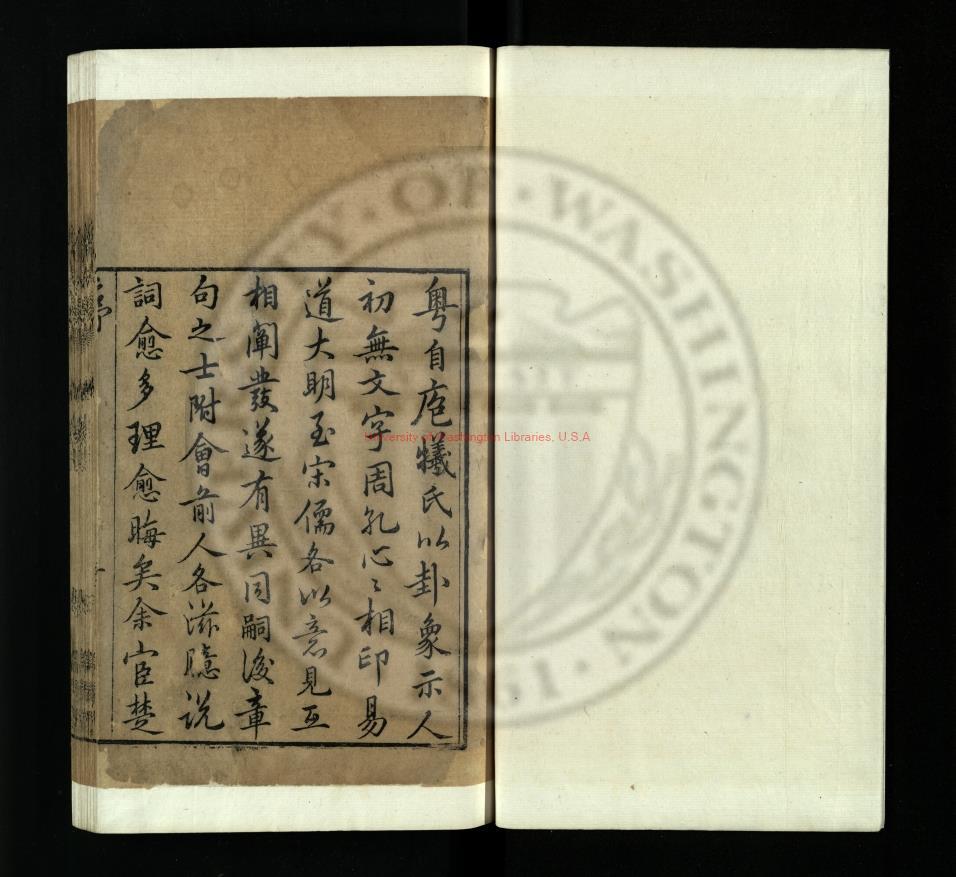 粤自庖犧氏以卦象示人
初無文字周孔心〻相印易
道大明至宋儒各以意見互
相闡發遂有異同嗣後章
句之士附會前人各滋臆说
詞愈多理愈晦矣余宦楚
序
University of Washington Libraries, U.S.A
UNIVERSITY · OF · WASHINGTON · 1861 ·